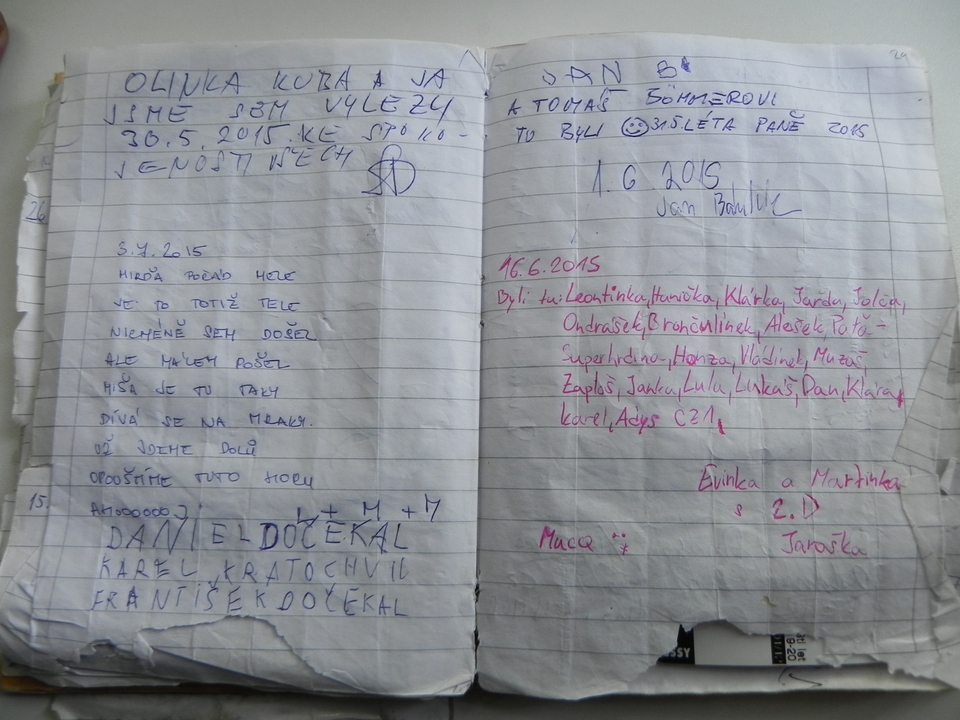 OLINKA KUBA A JA
JSME SEM VYLEZLY
30.5.2015. KE SPOKO-
JENOSTI VŠECH
26
3.7.2015
MIRĎA POŘÁD MELE
JE TO TOTIŽ TELE
NICMÉNĚ SEM DOŠEL
ALE MÁLEM POŠEL
MIŠA JE TU TAKY
DÍVÁ SE NA MRAKY.
UŽ JDEME DOLŮ
OPOUŠTÍME TUTO HORU
AHOOOOOO J + M + M
15.
DANIEL DOČEKAL
KAREL KRATOCHVIL
FRANTIŠEK DOČEKAL
JAN
A TOMÁŠ BÖHMEROVI
TO BYLI 31.5. LÉTA PANĚ 2015
1.6 2015
Jan
16.6.2015
Byli tu: Leontinka, Hanička, Klárka, Jarda, Jolča,
Ondrášek, Brončulínek, Alešek, Paťa-
Superhrdina, Honza, Vládínek, Muzaš,
Zaploš, Janka, Lulu, Linkaš, Dan, Klára,
Karel, Adys CZ1,
Evinka a Martinka
s 2.D
Macq Jaroška
29